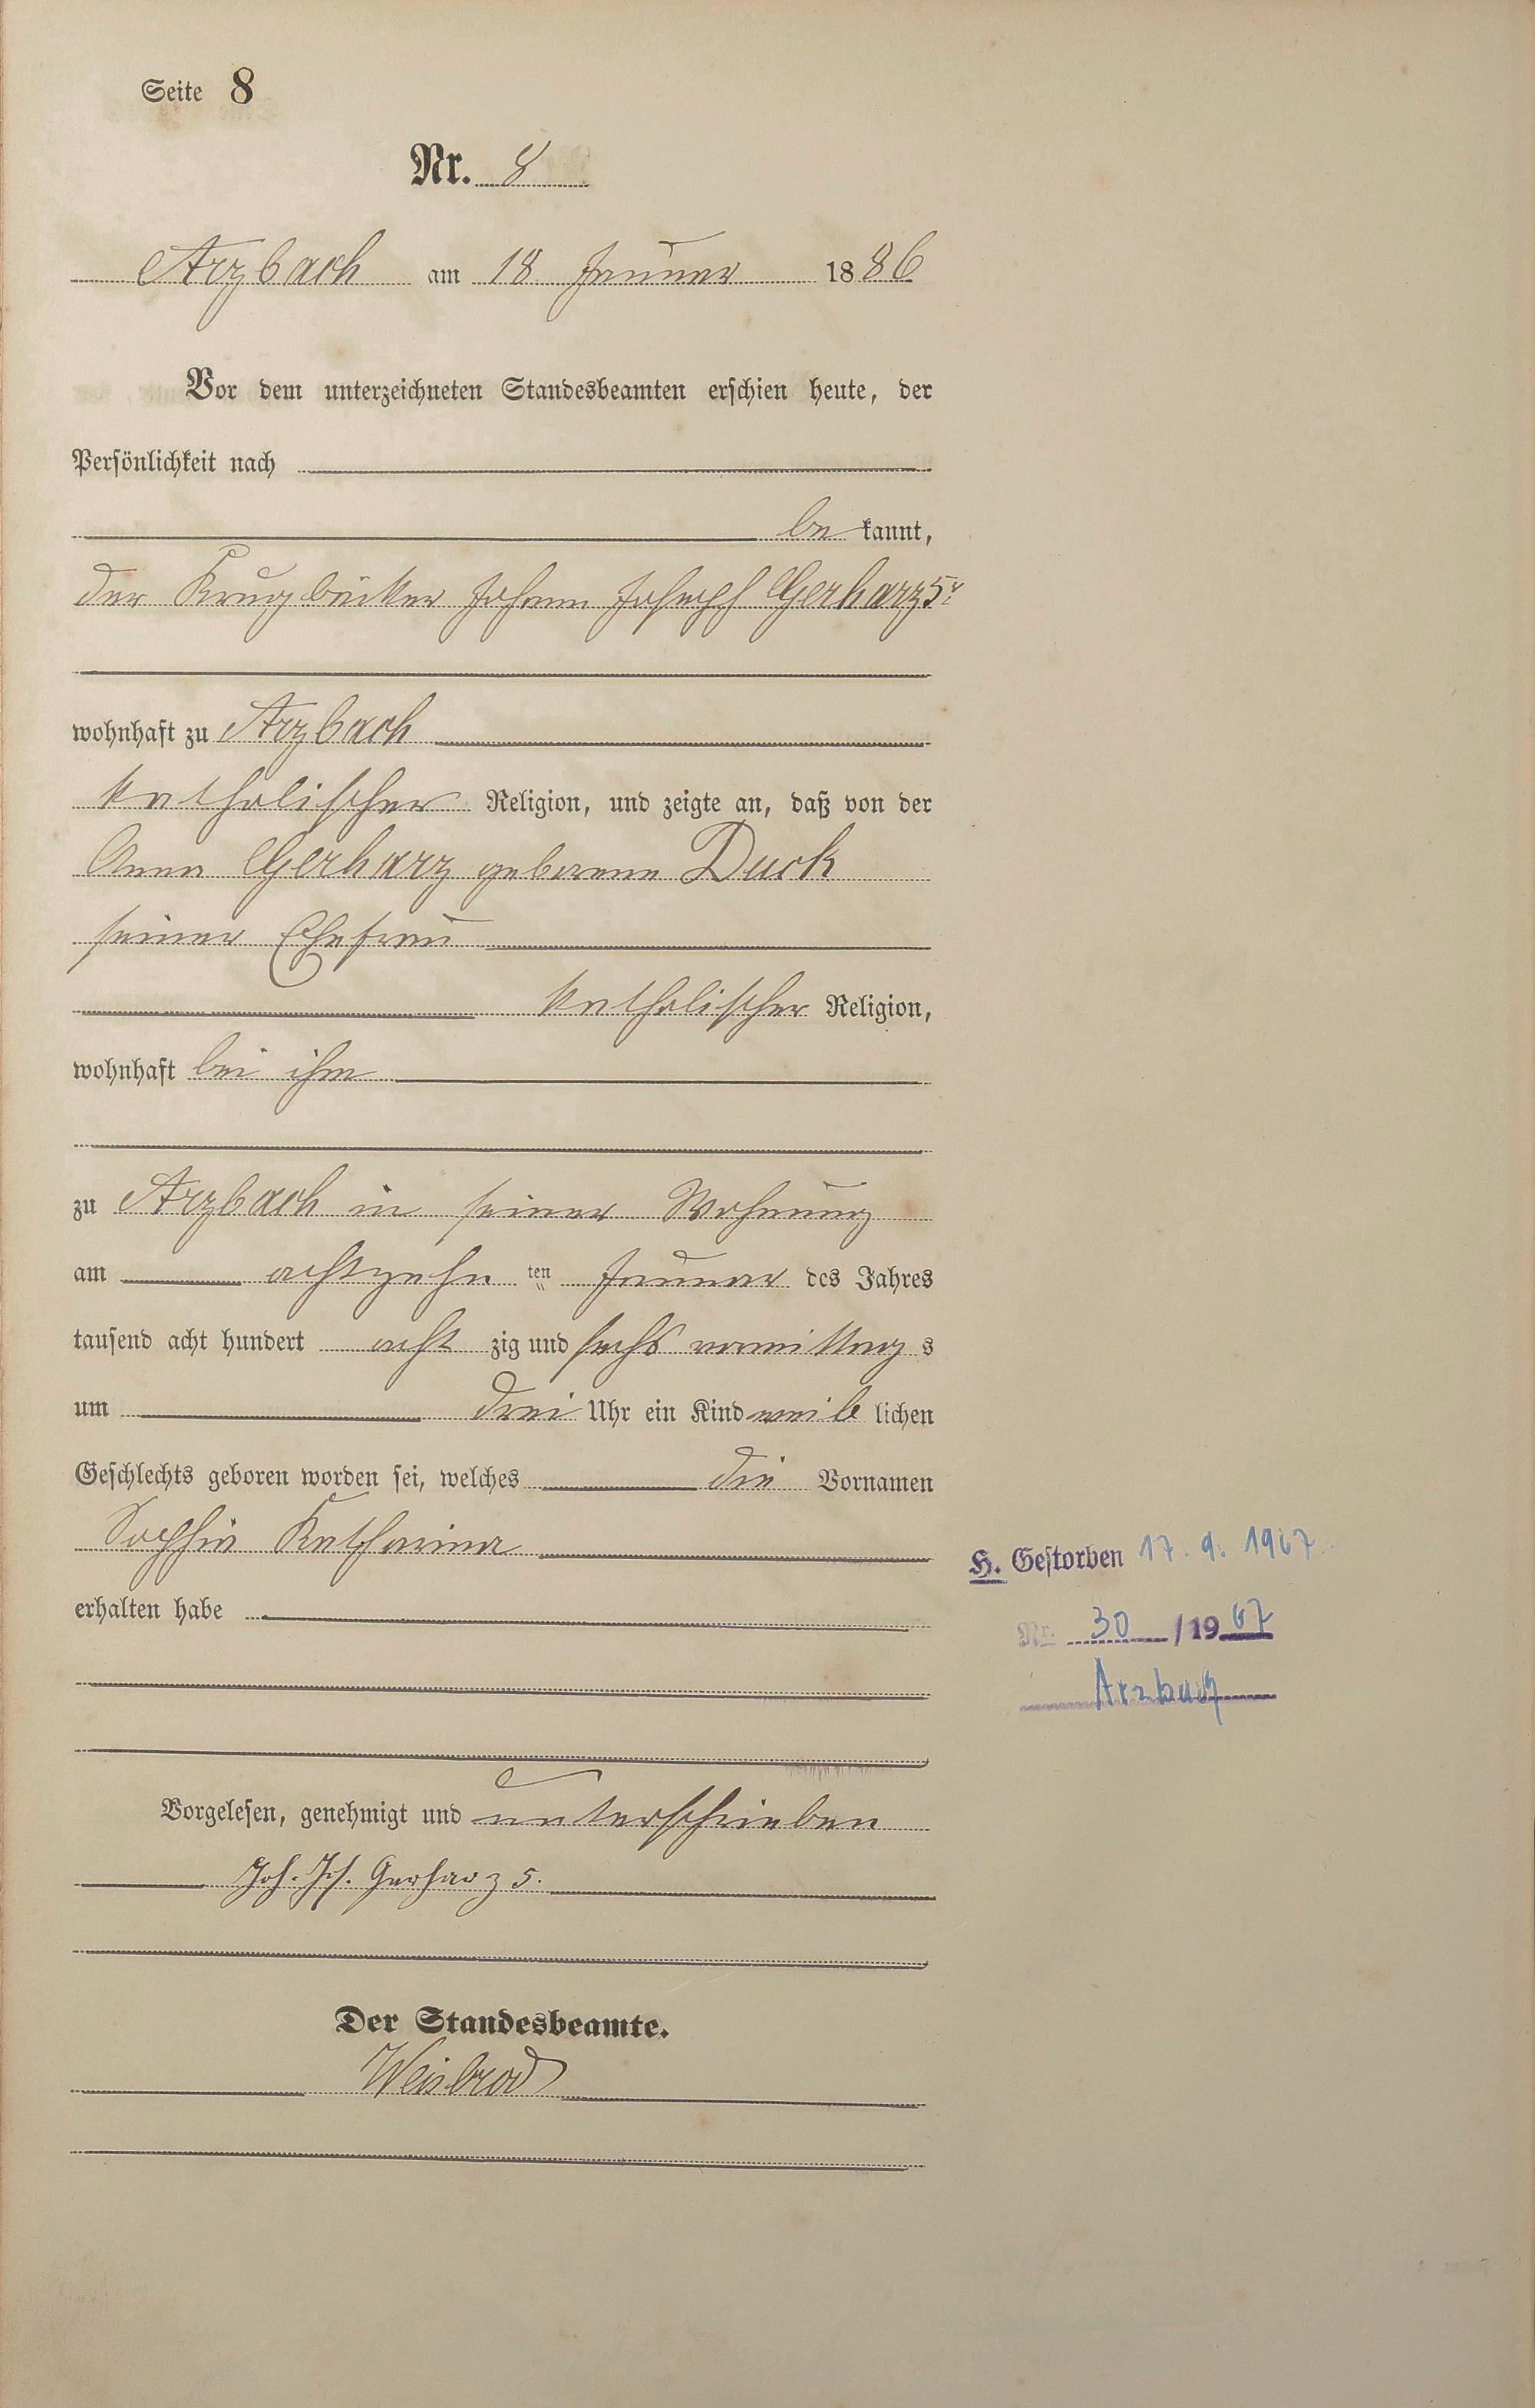 Seite 8
Nr. 8
Arzbach am 18 Januar 1886
Vor dem unterzeichneten Standesbeamten erschien heute, der
Persönlichkeit nach
be kannt,
der Krugbäcker Johann Joseph Gerharz 5r
wohnhaft zu Arzbach
katholischer Religion, und zeigte an, daß von der
Anna Gerharz geborene Duck
seiner Ehefrau
katholischer Religion,
wohnhaft bei ihm
zu Arzbach in seiner Wohnung
am achtzehn ten Januar des Jahres
tausend acht hundert acht zig und sechs vormittag s
um drei Uhr ein Kind weib lichen
Geschlechts geboren worden sei, welches die Vornamen
Sophia Katharina
H. Gestorben 17. 9. 1967
erhalten habe
Nr. 30 / 1967
Arzbach
Vorgelesen, genehmigt und unterschrieben
Joh. Jos. Gerharz 5.
Der Standesbeamte.
Weisbrod